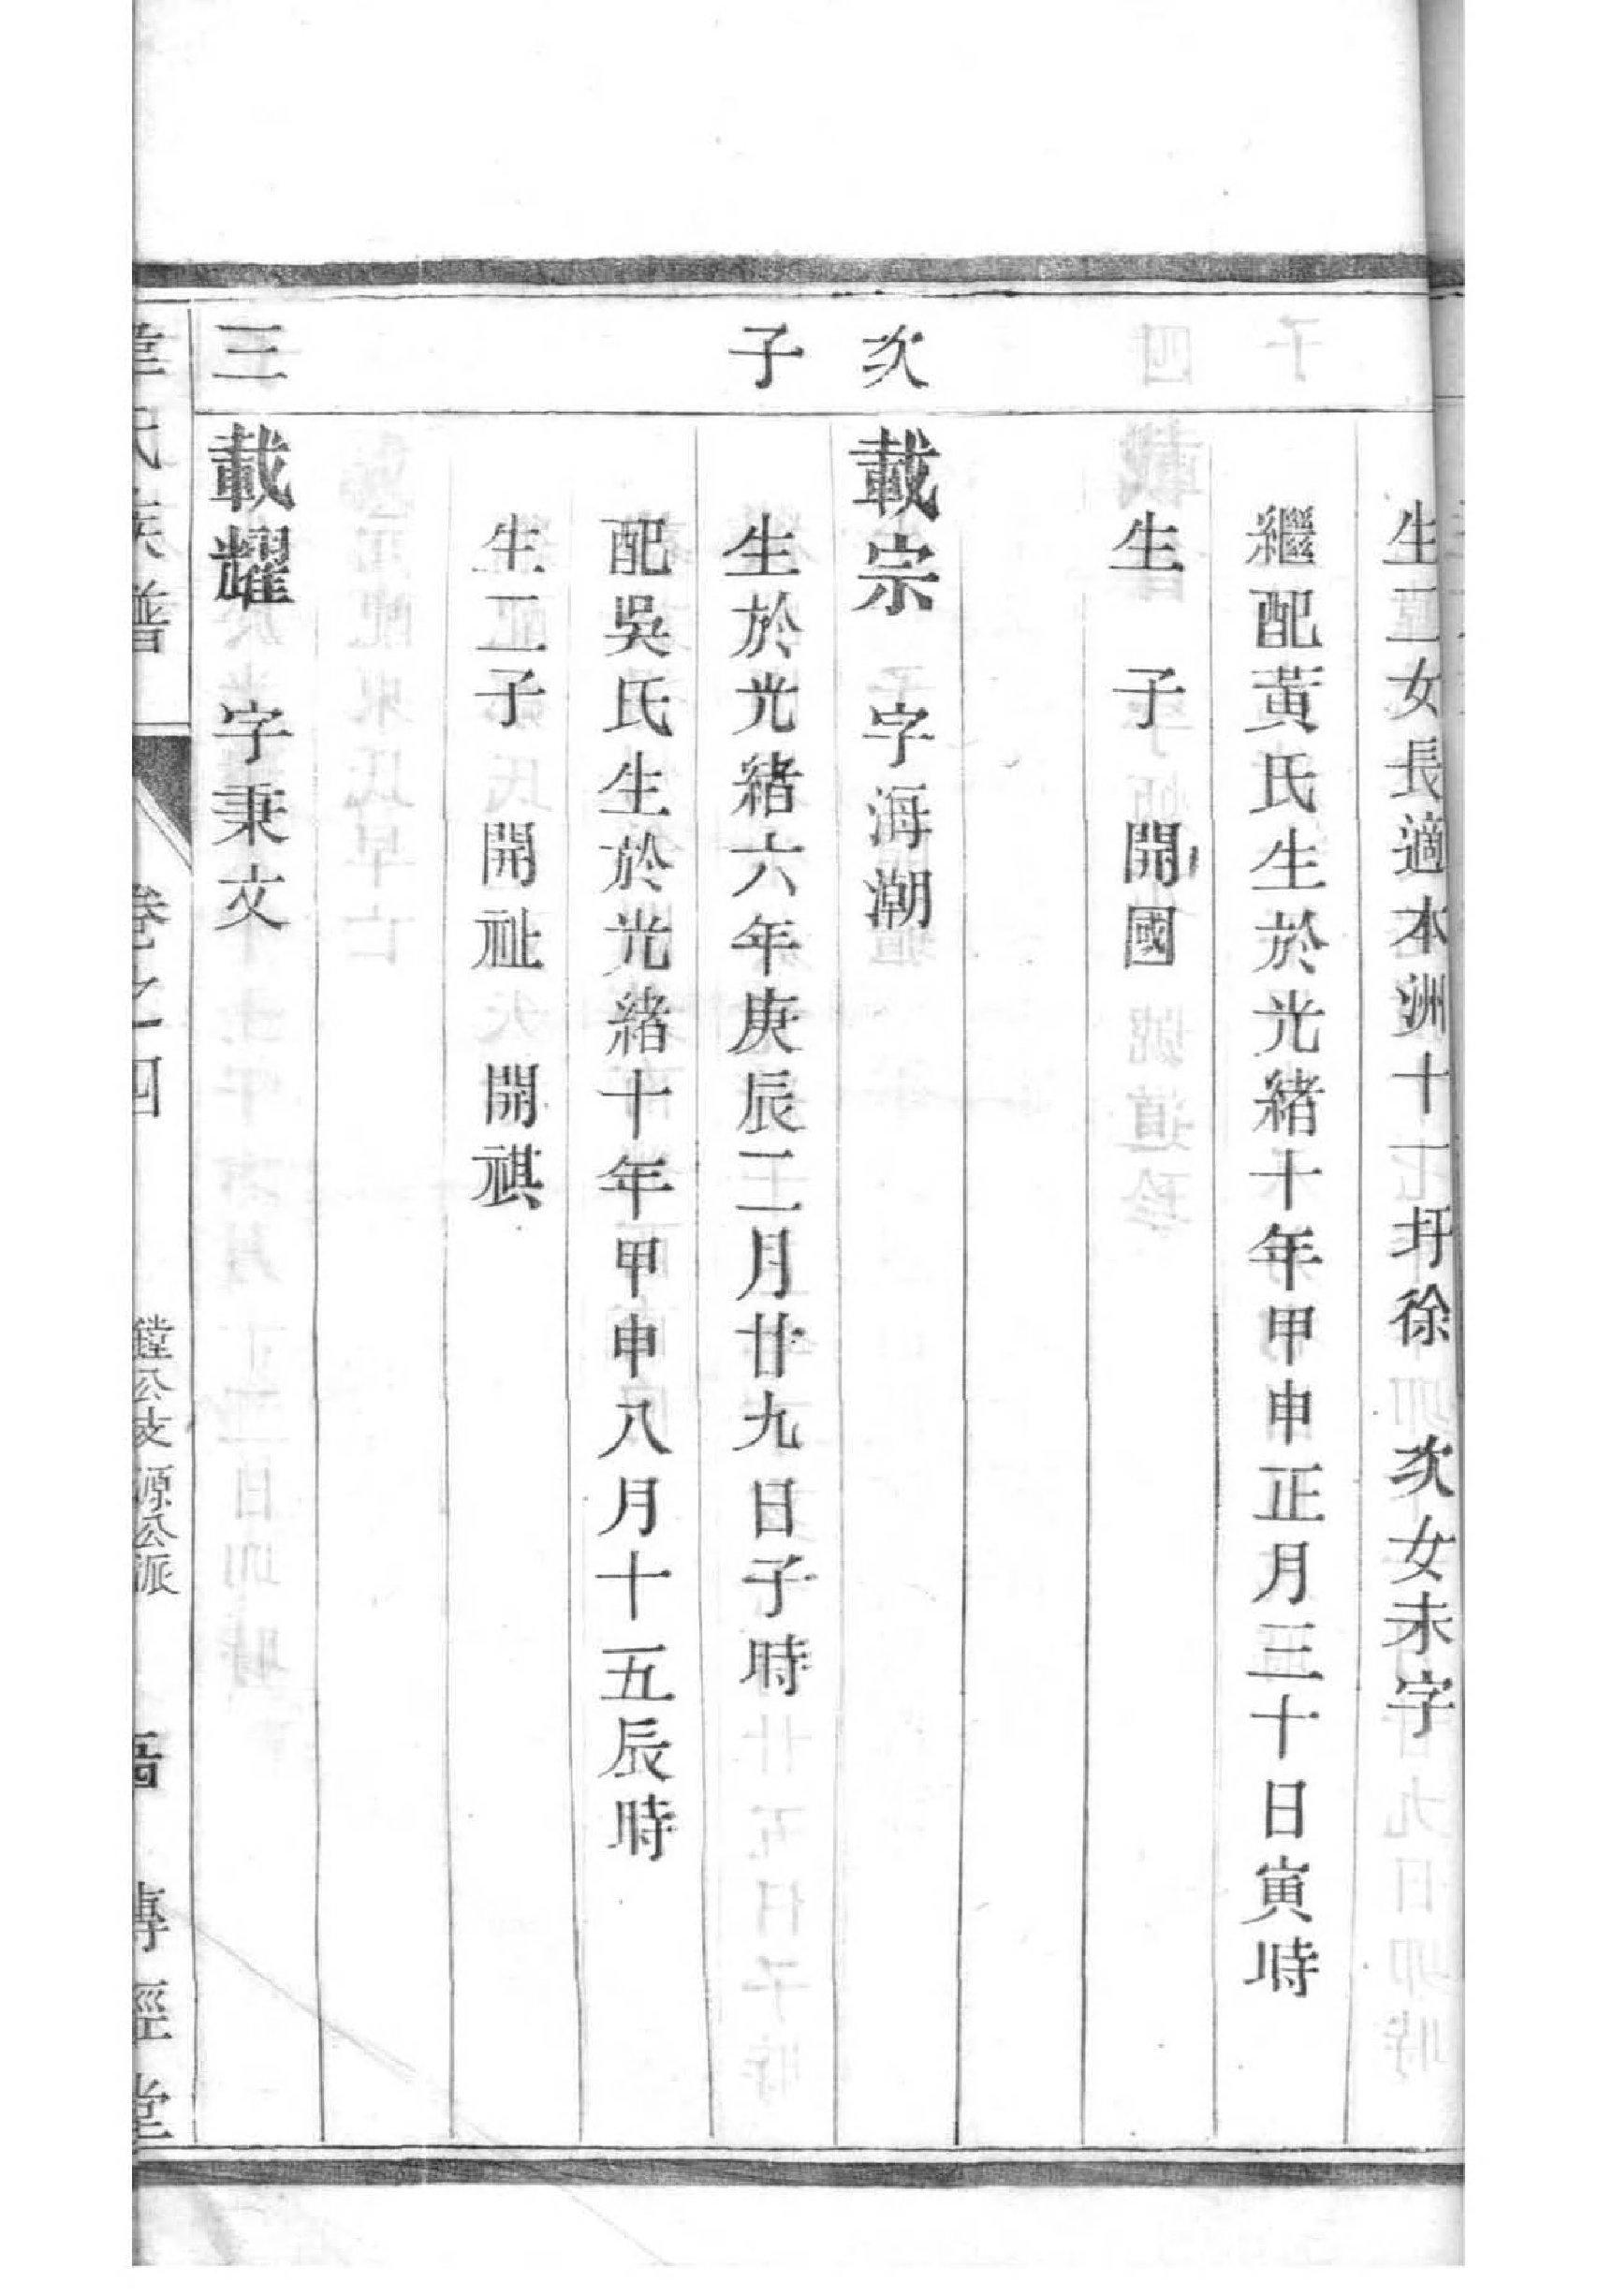 生二女長適本洲十一圩徐　次女未字
繼配黃氏生於光緒十年甲申正月三十日寅時
生　子　開國
次
載宗　字海潮
子
生於光緒六年庚辰二月廿九日子時
配吳氏生於光緒十年甲申八月十五辰時
生二子　開祉　開祺
三
載耀　字秉文
氏族譜　卷之四　鏜公支　源公派　傳經堂